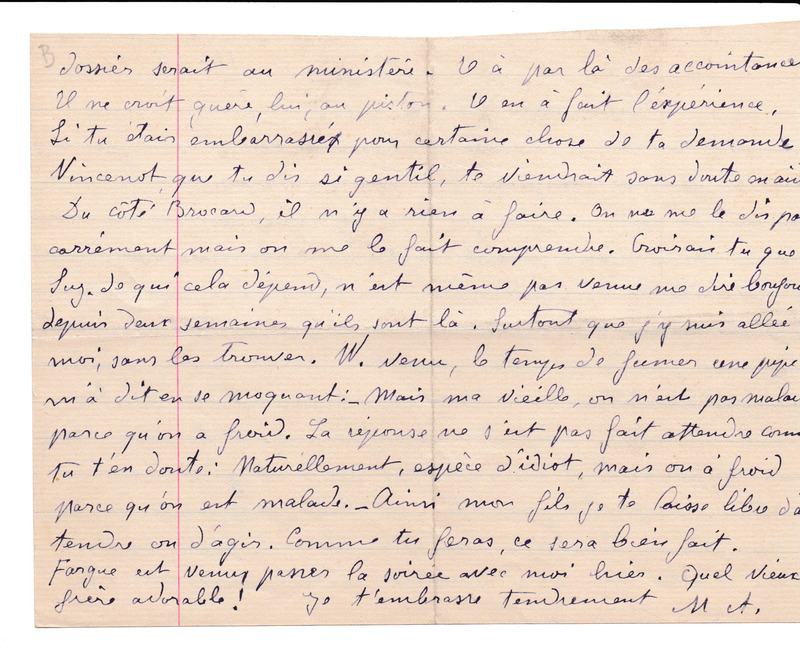 B
dossier serait au ministère. Il à par là des accointance
Il ne croit guère, lui, au piston. Il en à fait l'éxpérience.
Si tu étais embarrassée pour certaine chose de ta demande
Vincenot, que tu dis si gentil, te viendrait sans doute en ai
Du côté Brocard, il n'y a rien à faire. On ne me le dis pa
carrément mais on me le fait comprendre. Croirais tu que
Suz. de qui cela dépend, n'est même pas venue me dire bonjou
depuis deux semaines qu'ils sont là. Surtout que j'y suis allée
moi, sans les trouver. W. venu, le temps de fumer une pipe
m'à dit en se moquant:_ Mais ma vieille, on n'est pas mala
parce qu'on a froid. La réponse ne s'est pas fait attendre com
tu t'en doute: Naturéllement, espèce d'idiot, mais on à froid
parce qu'on est malade._ Ainsi mon fils je te laisse libre d'a
tendre ou d'agir. Comme tu feras, ce sera bien fait.
Fargue est venu passer la soirée avec moi hier. Quel vieux
frère adorable! Je t'embrasse tendrement M A.